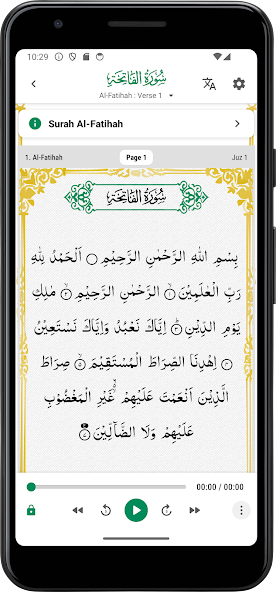 10:29
سُوْرَةُ الْفَاتِحَةِ
Al-Fatihah : Verse 1
Surah Al-Fatihah
1. Al-Fatihah Page 1 Juz 1
سُوْرَةُ الْفَاتِحَةِ
بِسْمِ اللهِ الرَّحْمٰنِ الرَّحِيْمِ ۝ اَلْحَمْدُ لِلّٰهِ
رَبِّ الْعٰلَمِيْنَ ۝١ الرَّحْمٰنِ الرَّحِيْمِ ۝٢ مٰلِكِ
يَوْمِ الدِّيْنِ ۝٣ اِيَّاكَ نَعْبُدُ وَاِيَّاكَ نَسْتَعِيْنُ
۝٤ اِهْدِنَا الصِّرَاطَ الْمُسْتَقِيْمَ ۝٥ صِرَاطَ
الَّذِيْنَ اَنْعَمْتَ عَلَيْهِمْ ۝٦ غَيْرِ الْمَغْضُوْبِ
عَلَيْهِمْ وَلَا الضَّآلِّيْنَ ۝٧
00:00 / 00:00